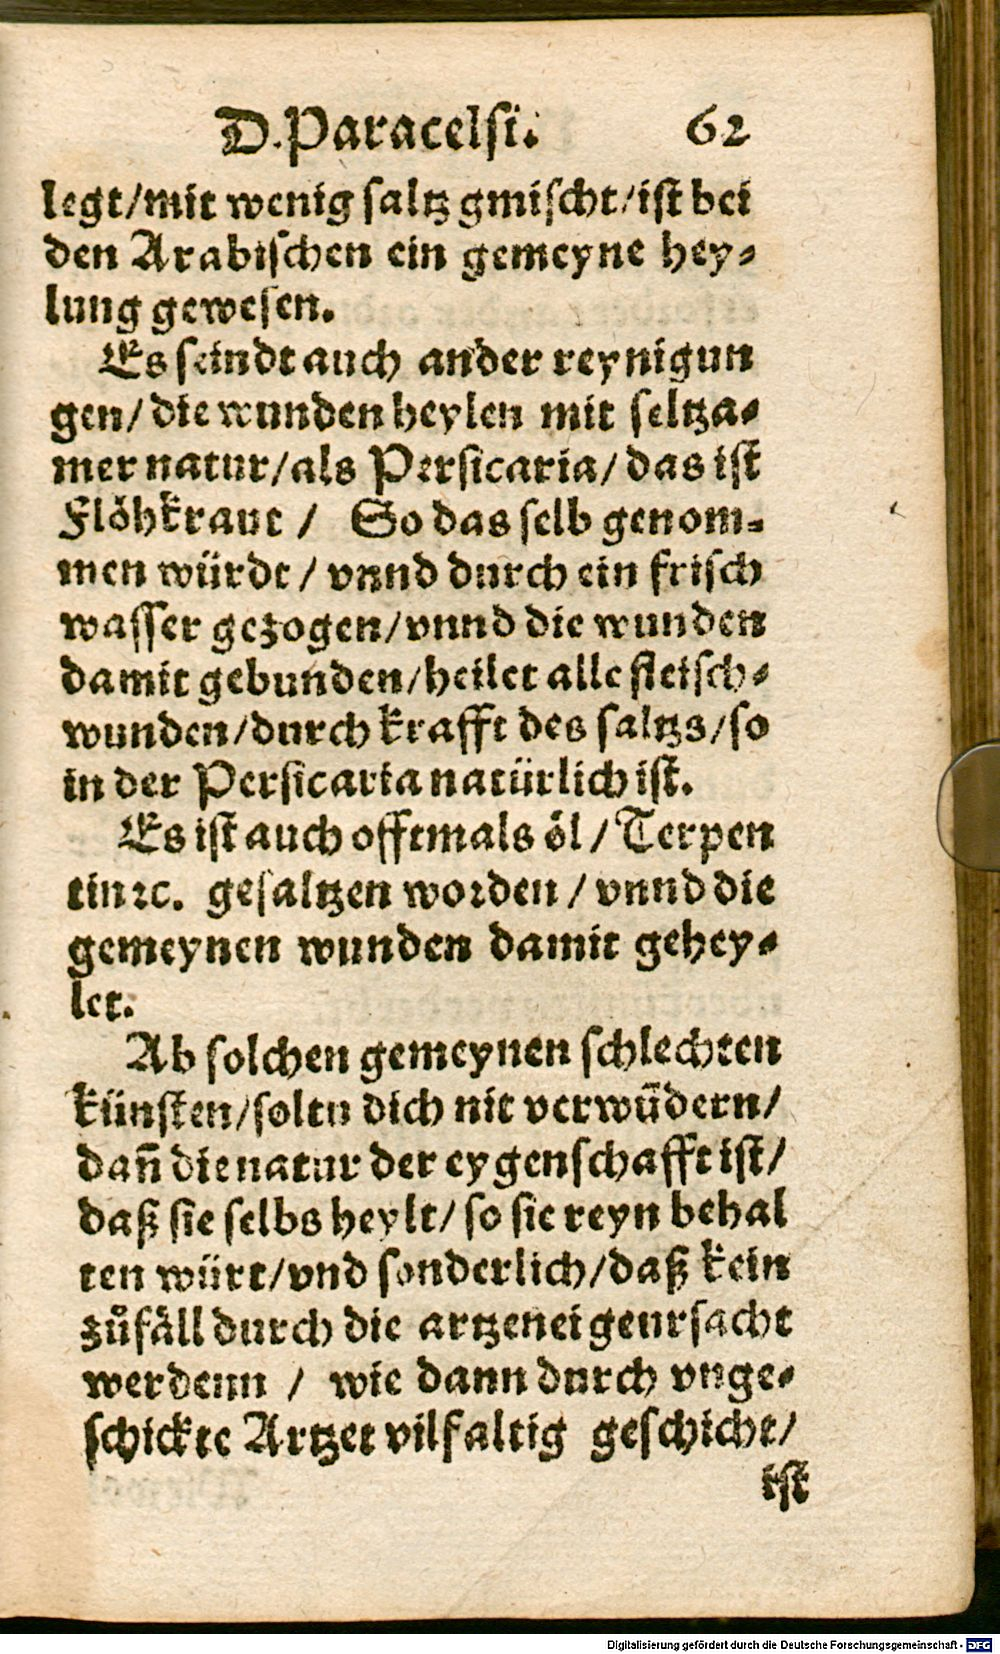 D. Paracelsi. 62
legt/mit wenig saltz gmischt/ist bei
den Arabischen ein gemeyne hey⸗
lung gewesen.
Es seindt auch ander reynigun
gen/die wunden heylen mit seltza⸗
mer natur/als Persicaria/das ist
Flöhkraut / So das selb genom⸗
men würdt / vnnd durch ein frisch
wasser gezogen/vnnd die wunden
damit gebunden/heilet alle fleisch⸗
wunden/durch krafft des saltzs/so
in der Persicaria natürlich ist.
Es ist auch offtmals öl / Terpen
tin ꝛc. gesaltzen worden / vnnd die
gemeynen wunden damit gehey⸗
let.
Ab solchen gemeynen schlechten
künsten/soltu dich nit verwũdern/
dañ die natur der eygenschafft ist/
daß sie selbs heylt/so sie reyn behal
ten würt/vnd sonderlich/daß kein
zůfäll durch die artzenei geursacht
werdenn / wie dann durch vnge⸗
schickte Artzet vilfaltig geschicht/
ist
Digitalisierung gefördert durch die Deutsche Forschungsgemeinschaft - DFG